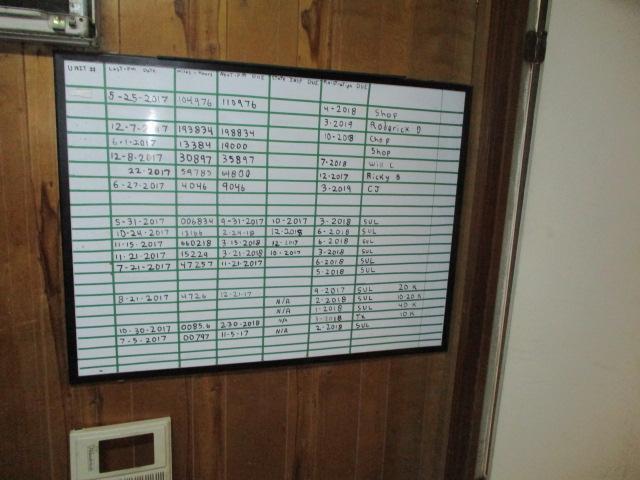 UNIT # LAST-PM DATE MILES-HOURS NEXT-PM DUE STATE INSP DUE DUE
5-25-2017 104976 110976 4-2018 Shop
12-7-2017 193834 198834 3-2019 Roderick D
6-1-2017 13384 19000 10-2018 Shop
12-8-2017 30897 35897 Shop
22-2017 59785 64800 7-2018 Will C
6-27-2017 4046 9046 12-2017 Ricky B
3-2019 CJ
5-31-2017 006834 9-31-2017 10-2017 3-2018 SUL
10-24-2017 2-24-18 12-2018 6-2018 SUL
11-15-2017 060218 3-15-2018 12-2017 6-2018 SUL
11-21-2017 15229 3-21-2018 10-2017 3-2018 SUL
7-21-2017 47257 11-21-2017 6-2018 SUL
5-2018 SUL
9-2017 SUL 20 K
8-21-2017 4726 12-21-17 N/A 2-2018 SUL 10-20 K
N/A 1-2018 SUL 40 K
N/A 10 K
10-30-2017 0085.6 2-30-2018 N/A 2-2018 SUL
7-5-2017 00797 11-5-17